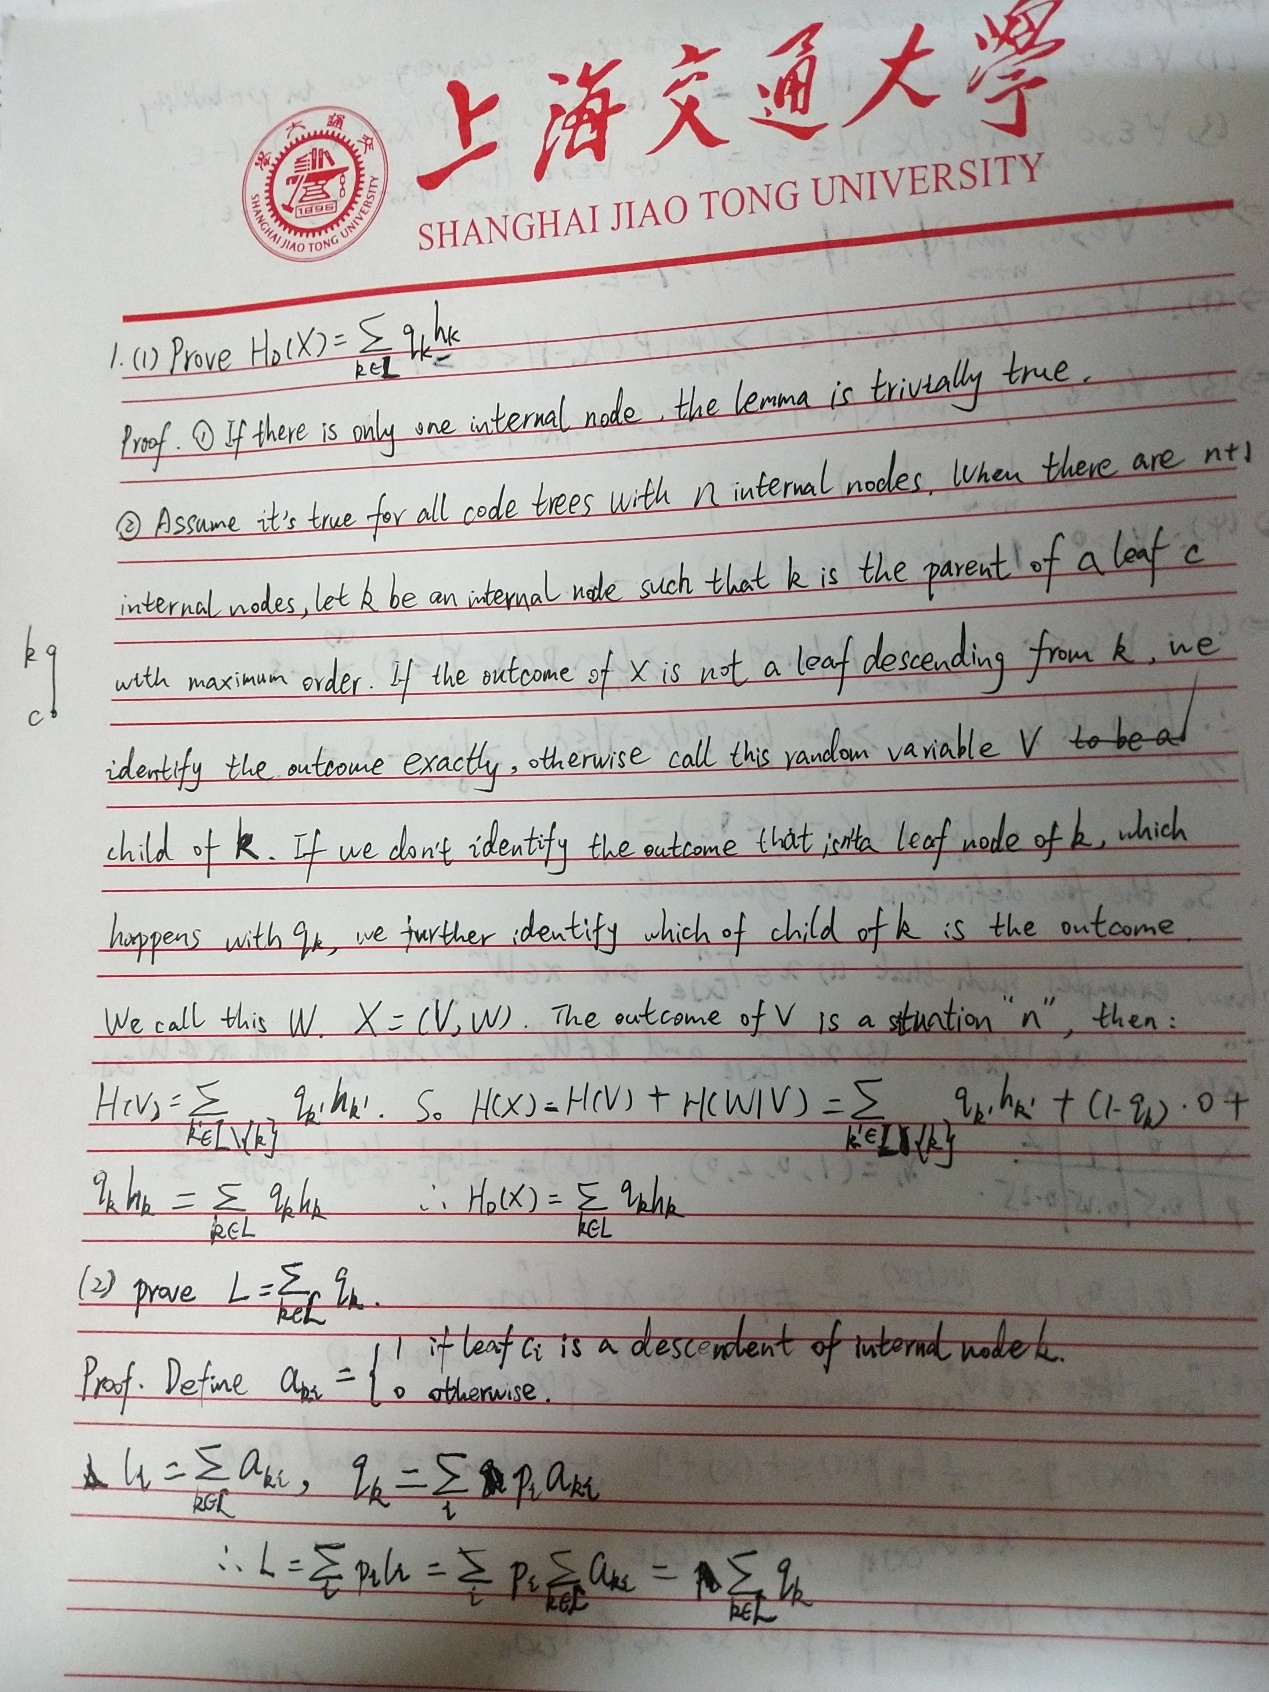 上海交通大學
SHANGHAI JIAO TONG UNIVERSITY
1896
SHANGHAI JIAO TONG UNIVERSITY
1.(1) Prove H_D(X) = Σ_{k∈L} q_k h_k
Proof. ① If there is only one internal node, the lemma is trivially true.
② Assume it's true for all code trees with n internal nodes. When there are n+1
internal nodes, let k be an internal node such that k is the parent of a leaf c
with maximum order. If the outcome of X is not a leaf descending from k, we
k
c
identify the outcome exactly, otherwise call this random variable V to be a
child of k. If we don't identify the outcome that isn't a leaf node of k, which
happens with q_k, we further identify which of child of k is the outcome.
We call this W. X = (V, W). The outcome of V is a situation "n", then:
H(V) = Σ_{k'∈L\{k}} q_k' h_k'. So H(X) = H(V) + H(W|V) = Σ_{k'∈L\{k}} q_k' h_k' + (1-q_k)·0 +
q_k h_k = Σ_{k∈L} q_k h_k ∴ H_D(X) = Σ_{k∈L} q_k h_k
(2) prove L = Σ_{k∈L} q_k.
Proof. Define a_ki = { 1 if leaf c_i is a descendent of internal node k.
0 otherwise.
l_i = Σ_{k∈L} a_ki, q_k = Σ_i p_i a_ki
∴ L = Σ_i p_i l_i = Σ_i p_i Σ_{k∈L} a_ki = Σ_{k∈L} q_k